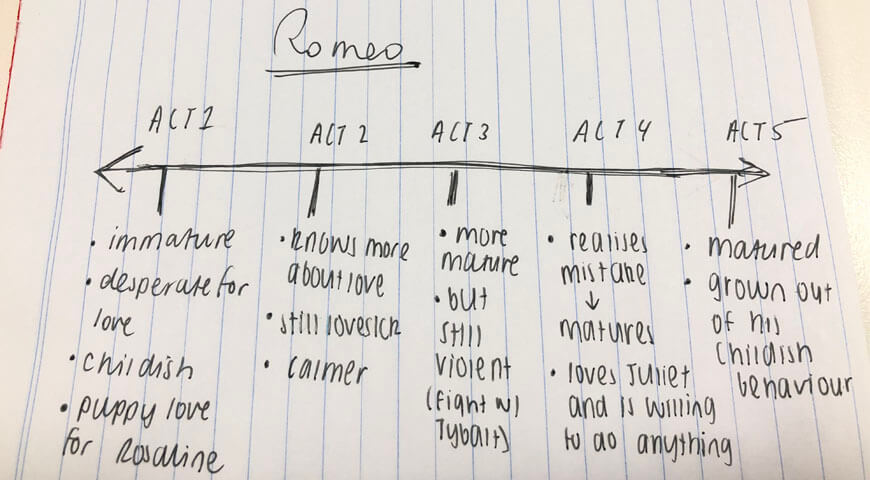 Romeo
ACT 1
ACT 2
ACT 3
ACT 4
ACT 5
• immature
• desperate for
love
• childish
• puppy love
for Rosaline
• knows more
about love
• still lovesick
• calmer
• more
mature
• but
still
violent
(fight w/
Tybalt)
• realises
mistake
↓
matures
• loves Juliet
and is willing
to do anything
• matured
• grown out
of his
childish
behaviour